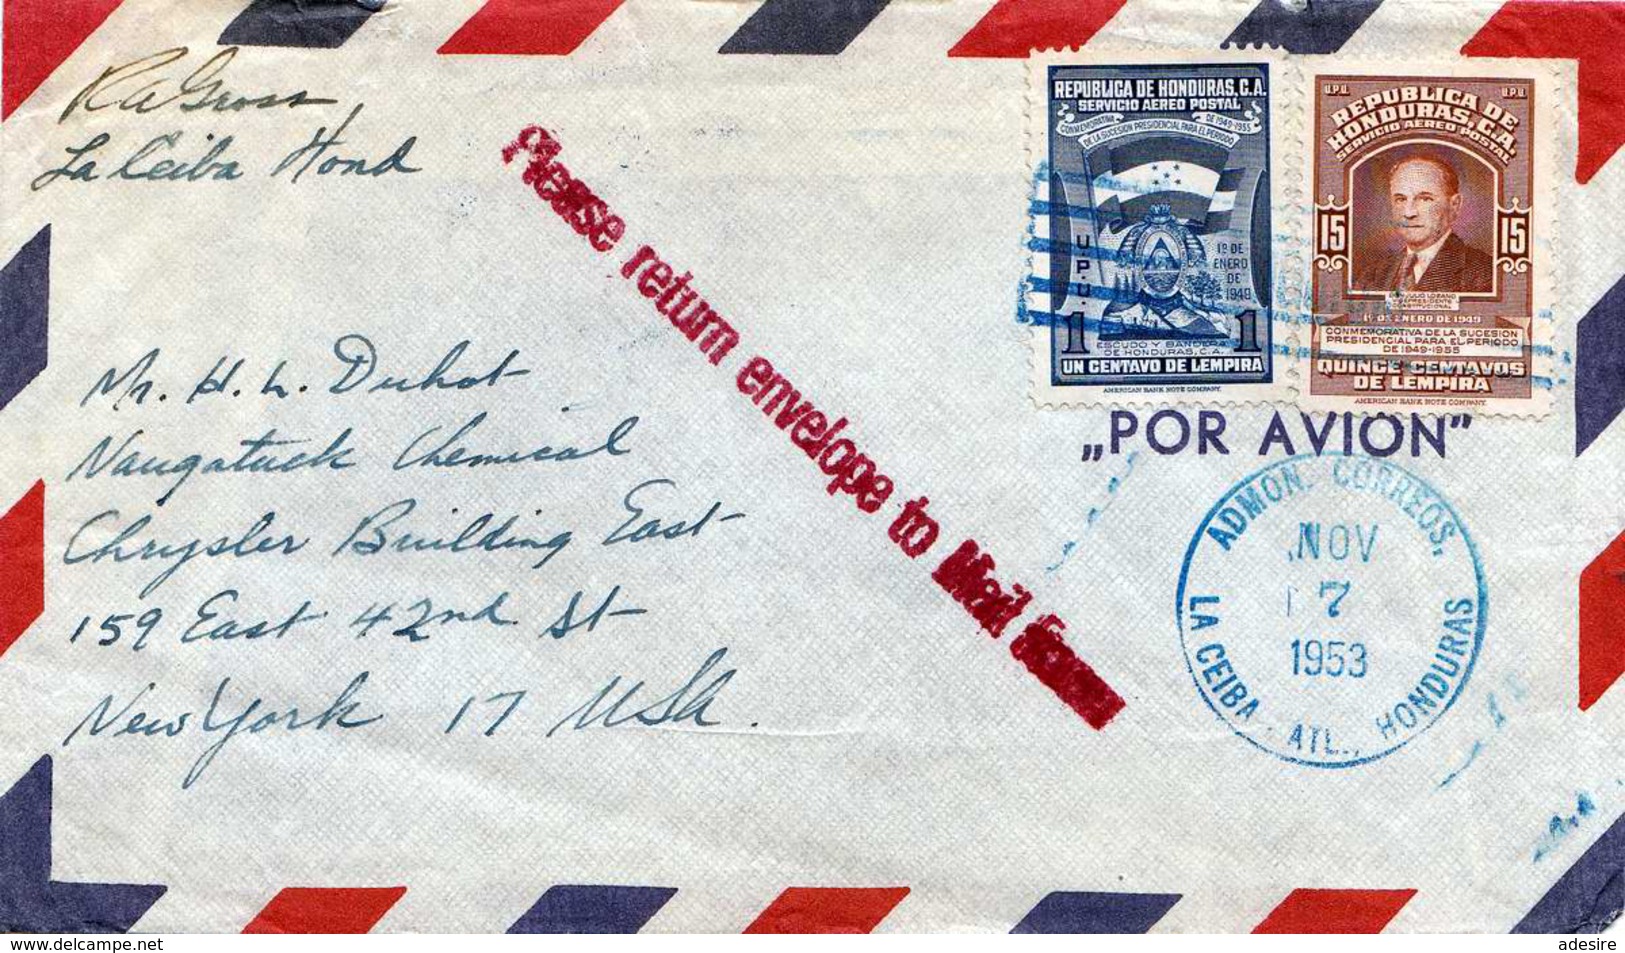 R A Gross,
La Ceiba Hond
Please return envelope to Mail Room
Mr. H. L. Duhot
Naugatuck Chemical
Chrysler Building East
159 East 42nd St
New York 17 USA.
REPUBLICA DE HONDURAS, C.A.
SERVICIO AEREO POSTAL
CONMEMORATIVA DE 1949-1955
DE LA SUCESION PRESIDENCIAL PARA EL PERIODO
U.P.U.
1º DE
ENERO
DE
1949
1 1
ESCUDO Y BANDERA
DE HONDURAS, C.A.
UN CENTAVO DE LEMPIRA
AMERICAN BANK NOTE COMPANY.
U.P.U. U.P.U.
REPUBLICA DE
HONDURAS, C.A.
SERVICIO AEREO POSTAL
15 15
JULIO LOZANO
VICEPRESIDENTE
1º DE ENERO DE 1949
CONMEMORATIVA DE LA SUCESION
PRESIDENCIAL PARA EL PERIODO
DE 1949-1955
QUINCE CENTAVOS
DE LEMPIRA
AMERICAN BANK NOTE COMPANY.
„POR AVION"
ADMON. CORREOS.
NOV
7
1953
LA CEIBA - ATL., HONDURAS
delcampe.net
adesire